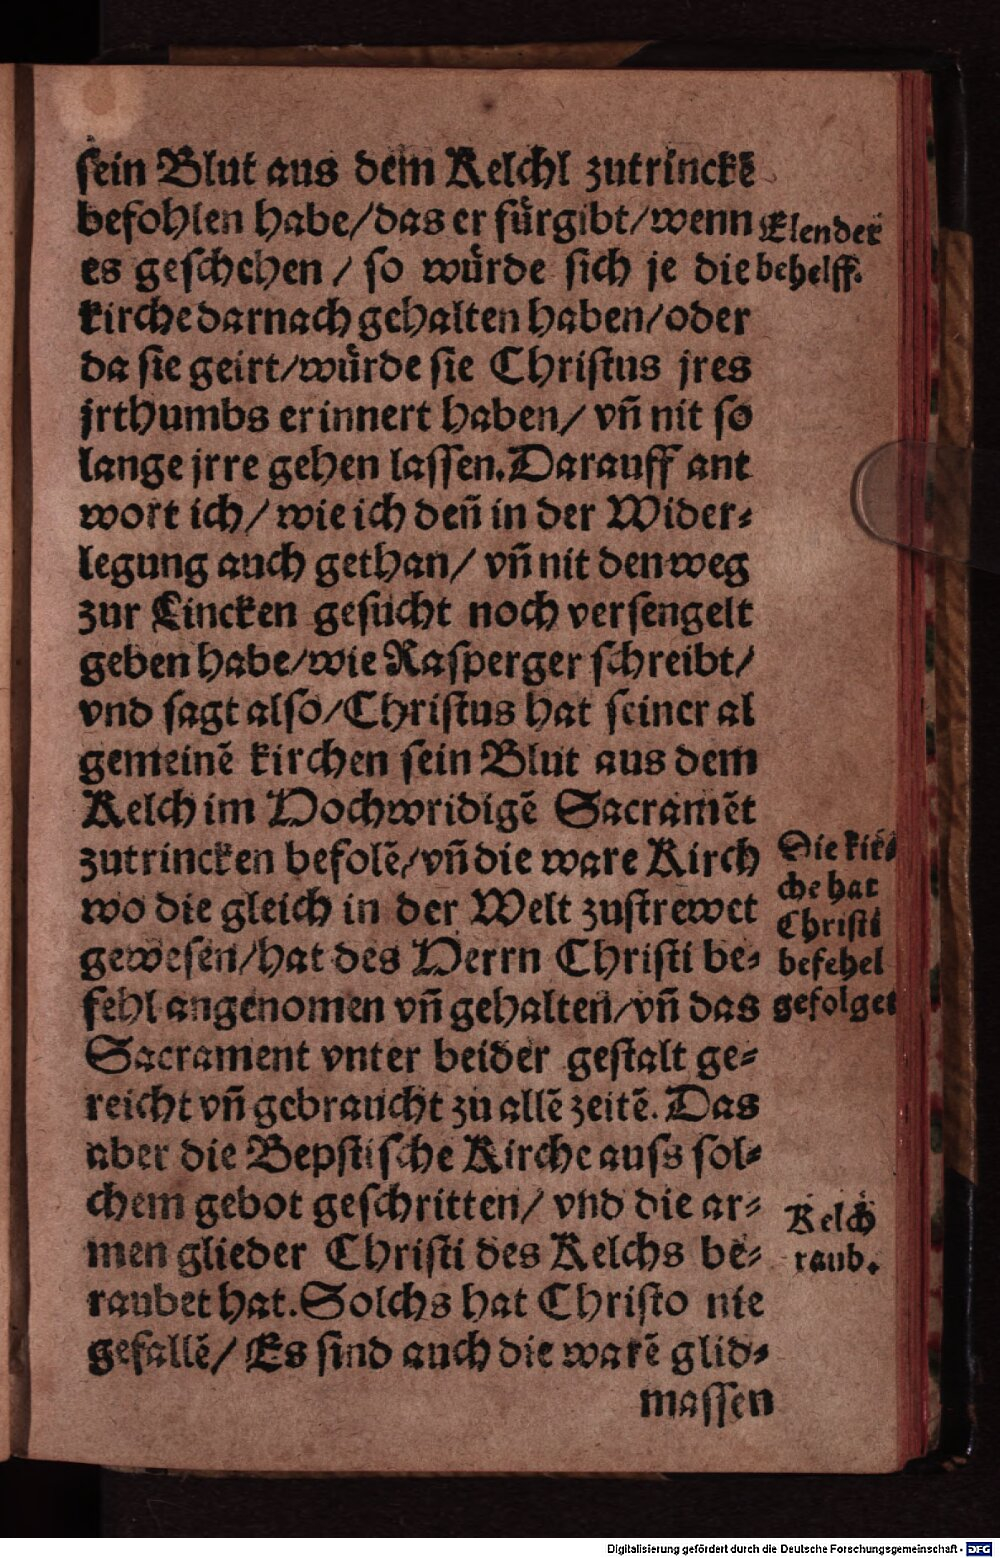 sein Blut aus dem Kelchl zutrinckē
befohlen habe/das er fürgibt/wenn
es geschehen / so würde sich je die
kirche darnach gehalten haben/oder
da sie geirt/würde sie Christus jres
jrthumbs erinnert haben/ vñ nit so
lange jrre gehen lassen.Darauff ant
wort ich/ wie ich deñ in der Wider⸗
legung auch gethan/ vñ nit den weg
zur Lincken gesucht noch versengelt
geben habe/wie Rasperger schreibt/
vnd sagt also/Christus hat seiner al
gemeinē kirchen sein Blut aus dem
Kelch im Hochwridigē Sacramēt
zutrincken befolē/vñ die ware Kirch
wo die gleich in der Welt zustrewet
gewesen/hat des Herrn Christi be⸗
fehl angenomen vñ gehalten/vñ das
Sacrament vnter beider gestalt ge⸗
reicht vñ gebraucht zu allē zeitē. Das
aber die Bepstische Kirche auss sol⸗
chem gebot geschritten/ vnd die ar⸗
men glieder Christi des Kelchs be⸗
raubet hat.Solchs hat Christo nie
gefallē/ Es sind auch die warē glid⸗
massen
Elender
behelff.
Die kir⸗
che hat
Christi
befehel
gefolget
Kelch
raub.
Digitalisierung gefördert durch die Deutsche Forschungsgemeinschaft - DFG